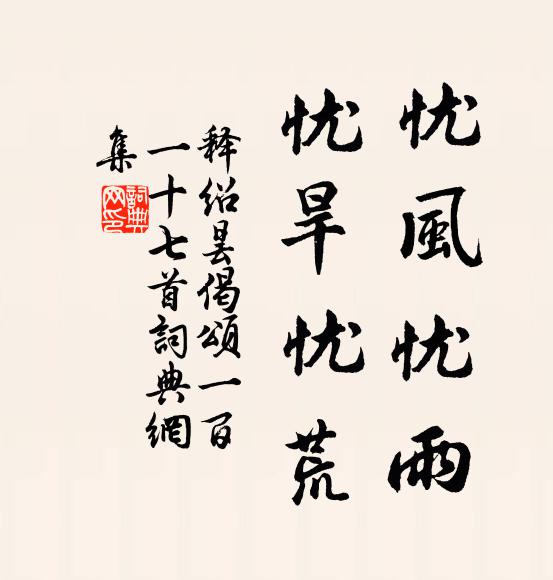 忧風忧雨
忧旱忧荒
释紹昙偈頌一百
一十七首詞典網
集
詞典
网印